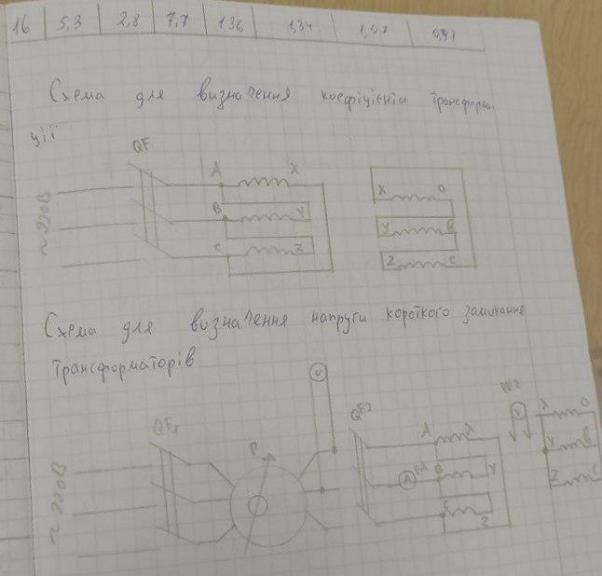 16 5,3 2,8 7,7 136 1,34 1,07 0,91
Схема для визначення коефіцієнта трансформа
ції
QF
A X
~220В
B Y
C Z
X
Y
Z C
Схема для визначення напруги короткого замикання
трансформаторів
V
QF1
QF2
P
~220В
A
A
Y
Z
V
Y
Z